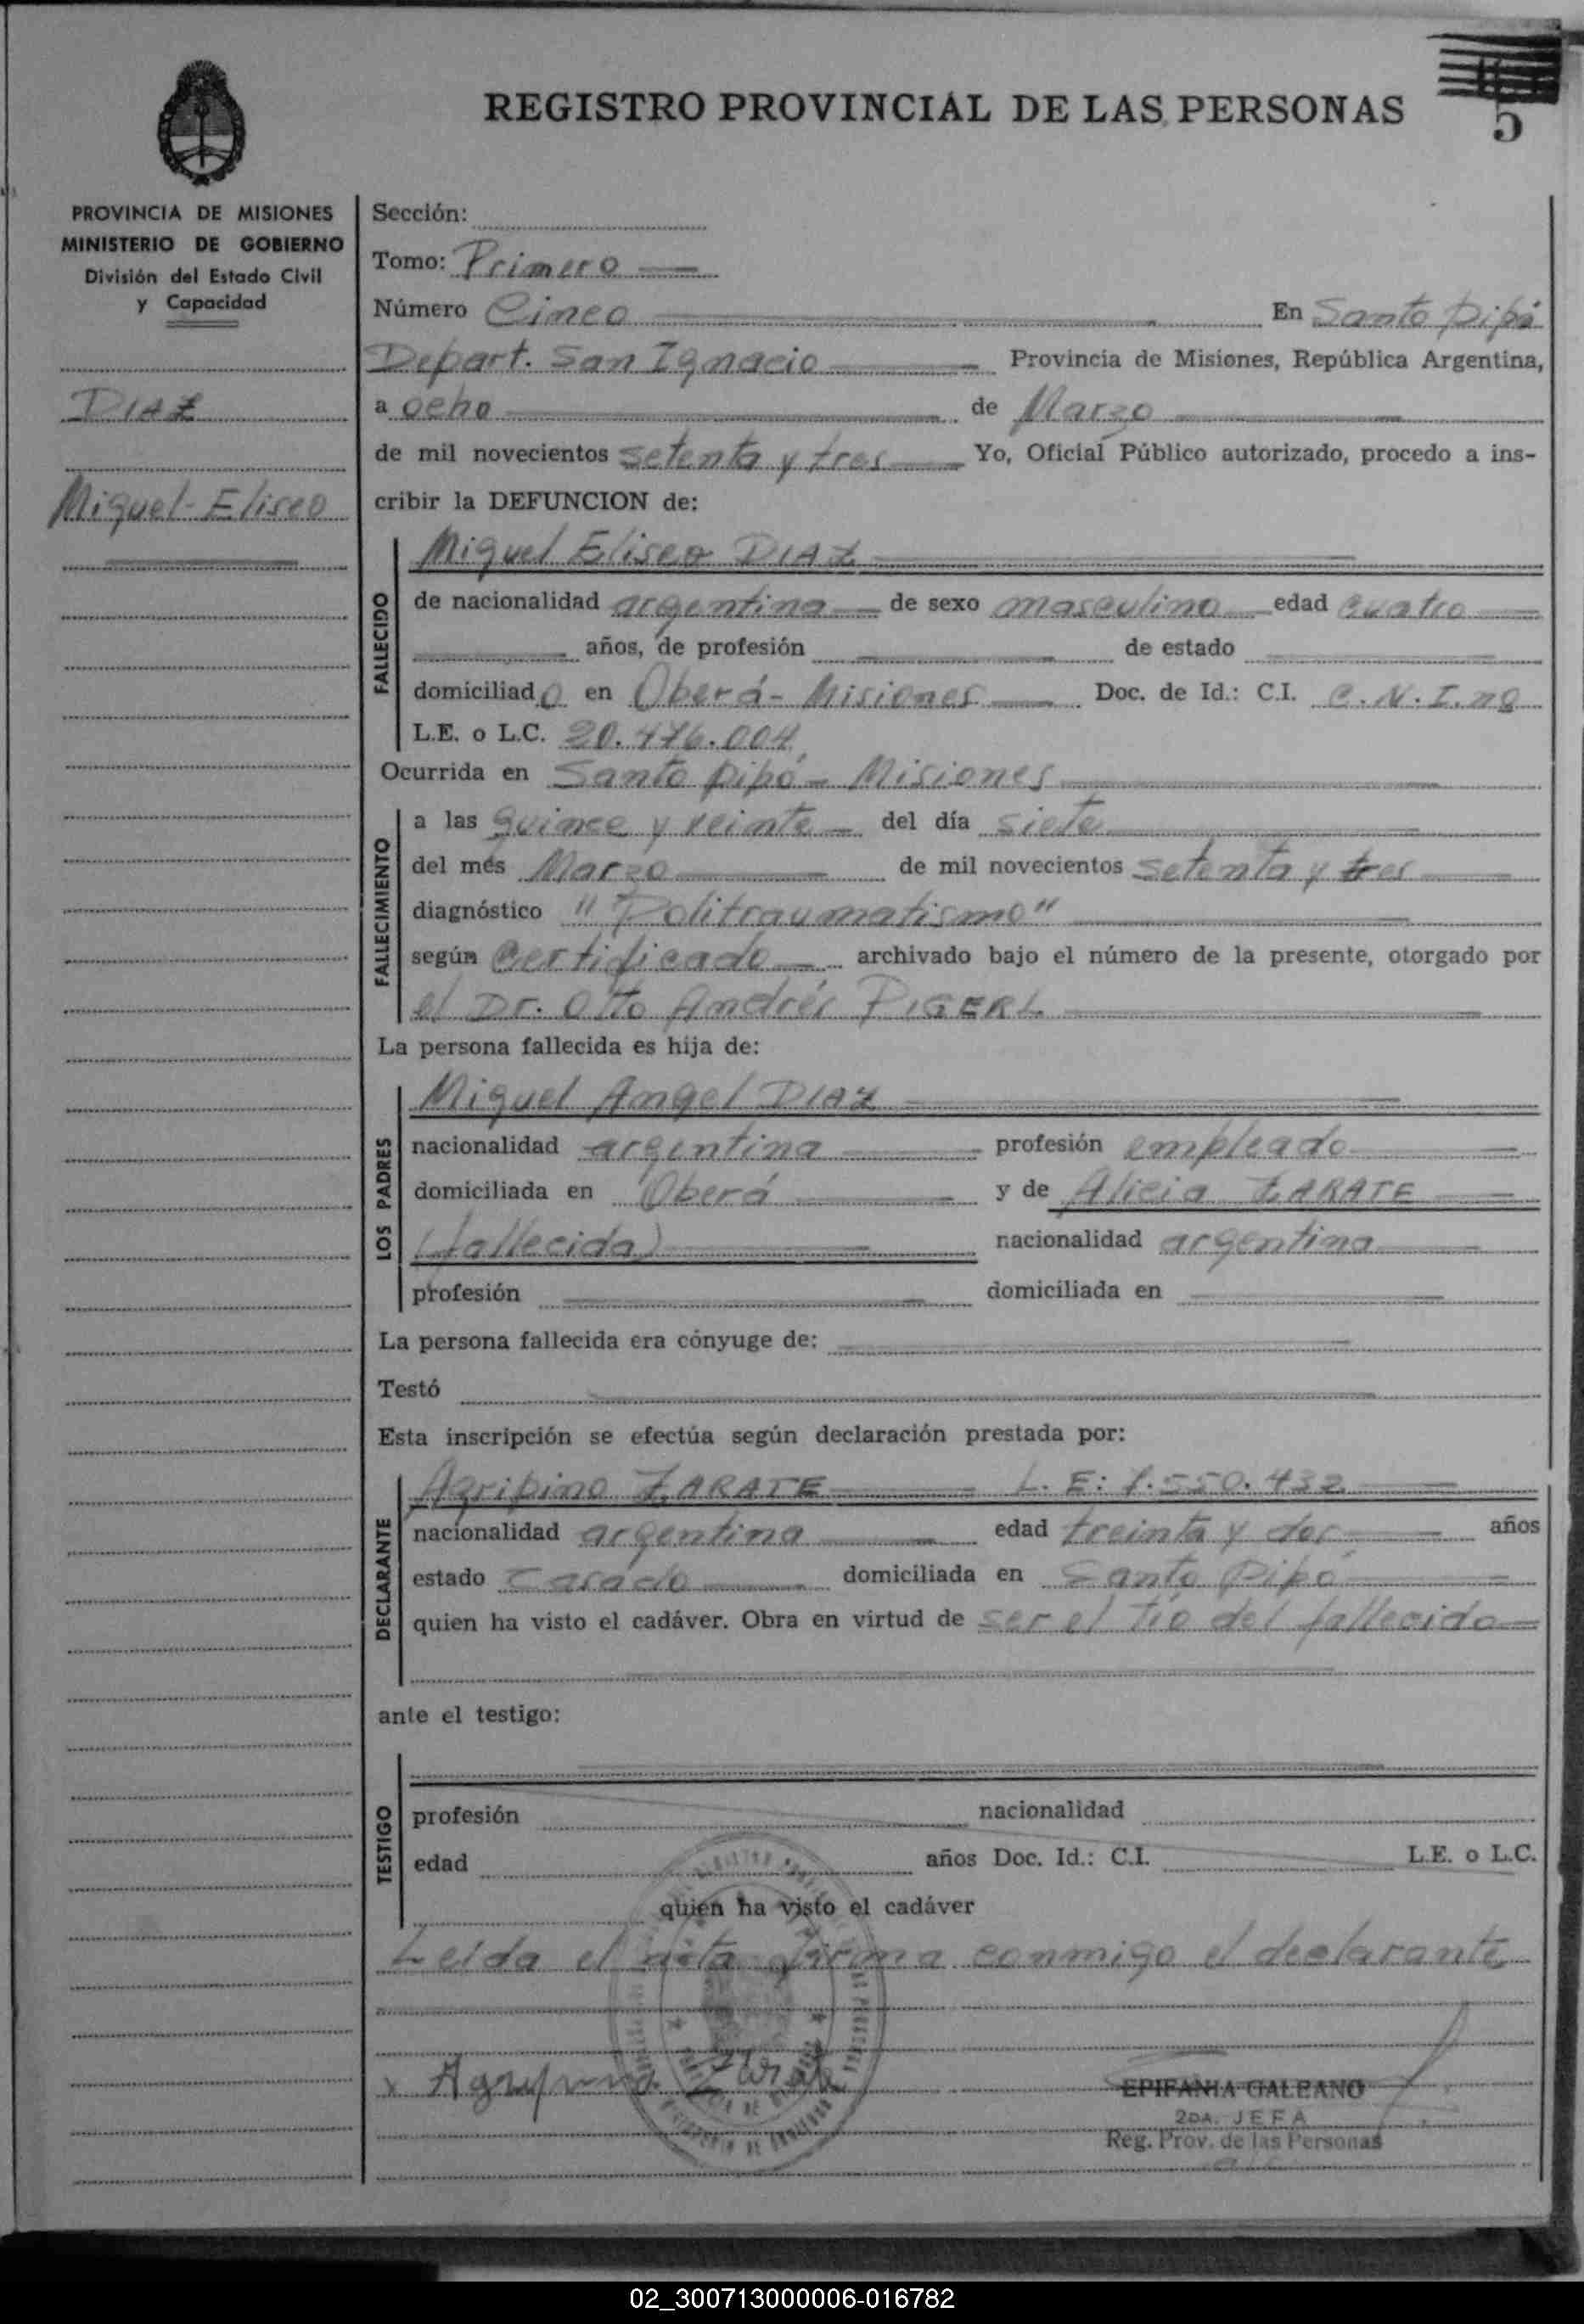 REGISTRO PROVINCIAL DE LAS PERSONAS
5
PROVINCIA DE MISIONES
MINISTERIO DE GOBIERNO
División del Estado Civil
y Capacidad
DIAZ
Miguel-Eliseo
Sección:
Tomo: Primero
Número Cinco En Santo Pipó
Depart. San Ignacio Provincia de Misiones, República Argentina,
a ocho de Marzo
de mil novecientos setenta y tres Yo, Oficial Público autorizado, procedo a ins-
cribir la DEFUNCION de:
FALLECIDO
Miguel Eliseo DIAZ
de nacionalidad argentina de sexo masculino edad cuatro
años, de profesión de estado
domiciliado en Oberá - Misiones Doc. de Id.: C.I. C.N.I. nº
L.E. o L.C. 20.476.004
Ocurrida en Santo Pipó - Misiones
FALLECIMIENTO
a las quince y veinte del día siete
del més Marzo de mil novecientos setenta y tres
diagnóstico "Politraumatismo"
según certificado archivado bajo el número de la presente, otorgado por
el Dr. Otto Andrés PIGERL
La persona fallecida es hija de:
LOS PADRES
Miguel Angel DIAZ
nacionalidad argentina profesión empleado
domiciliada en Oberá y de Alicia ZARATE
(fallecida) nacionalidad argentina
profesión domiciliada en
La persona fallecida era cónyuge de:
Testó
Esta inscripción se efectúa según declaración prestada por:
DECLARANTE
Agripino ZARATE L.E: 7.550.432
nacionalidad argentina edad treinta y dos años
estado casado domiciliada en Santo Pipó
quien ha visto el cadáver. Obra en virtud de ser el tío del fallecido
ante el testigo:
TESTIGO
profesión nacionalidad
edad años Doc. Id.: C.I. L.E. o L.C.
quien ha visto el cadáver
Leída el acta firma conmigo el declarante
x Agripino Zarate
EPIFANIA GALEANO
2DA. JEFA
Reg. Prov. de las Personas
02_300713000006-016782